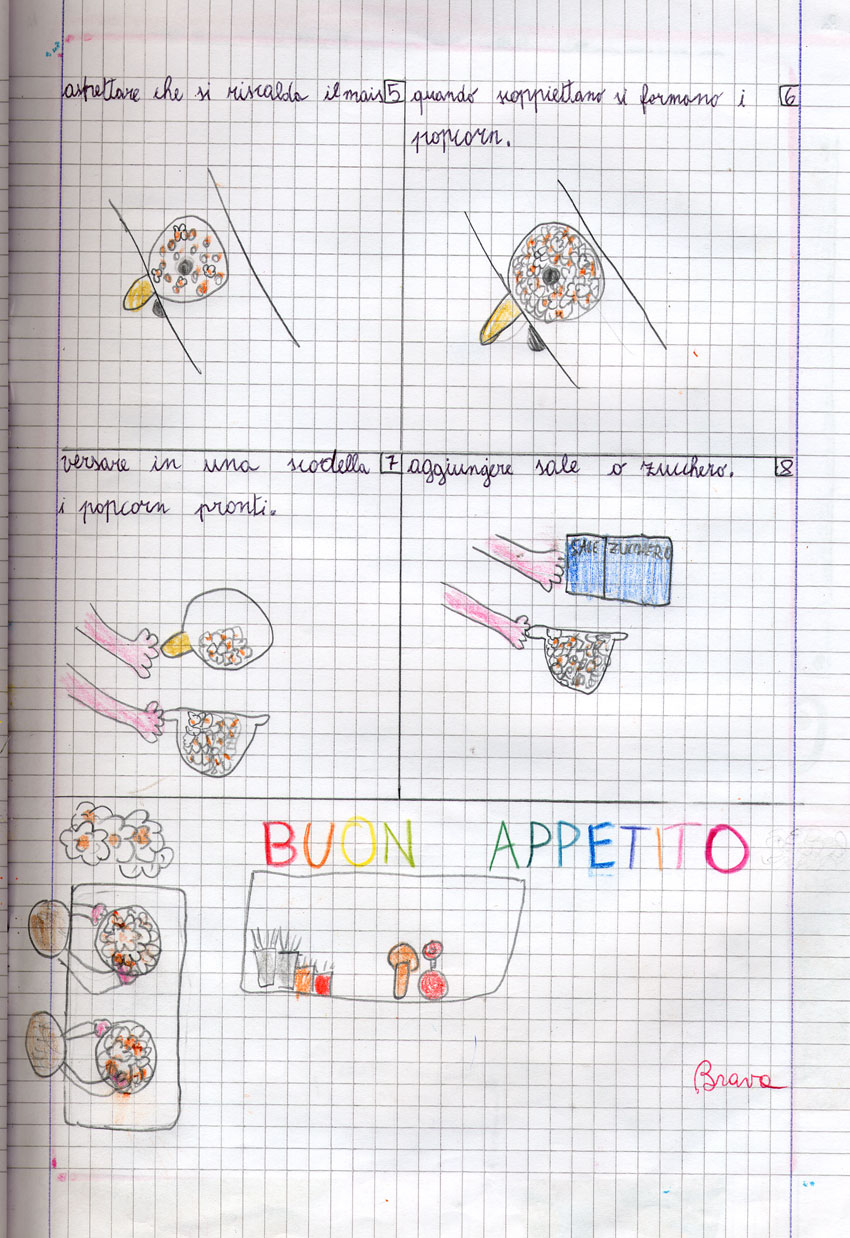 aspettare che si riscalda il mais 5
quando scoppiettano si formano i 6
popcorn.
versare in una scodella 7
i popcorn pronti.
aggiungere sale o zucchero. 8
SALE ZUCCHERO
BUON APPETITO
Brava